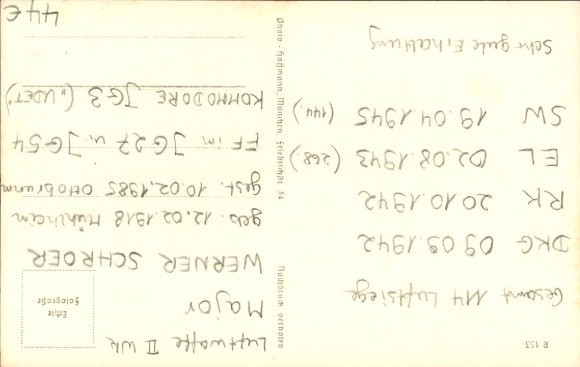 Luftwaffe II Wk
Major
WERNER SCHROER
geb. 12.02.1918 Mühlheim
gest. 10.02.1985 Ottobrunn
FF im JG27 u. JG54
KOMMODORE JG3 („UDET")
44€
Echte
Fotografie
Nachdruck verboten
Photo-Hoffmann, München, Friedrichstr. 34
R 153
Gesamt 114 Luftsiege
DKG 09.09.1942
RK 20.10.1942
EL 02.08.1943 (268.)
SW 19.04.1945 (144.)
Sehr gute Erhaltung